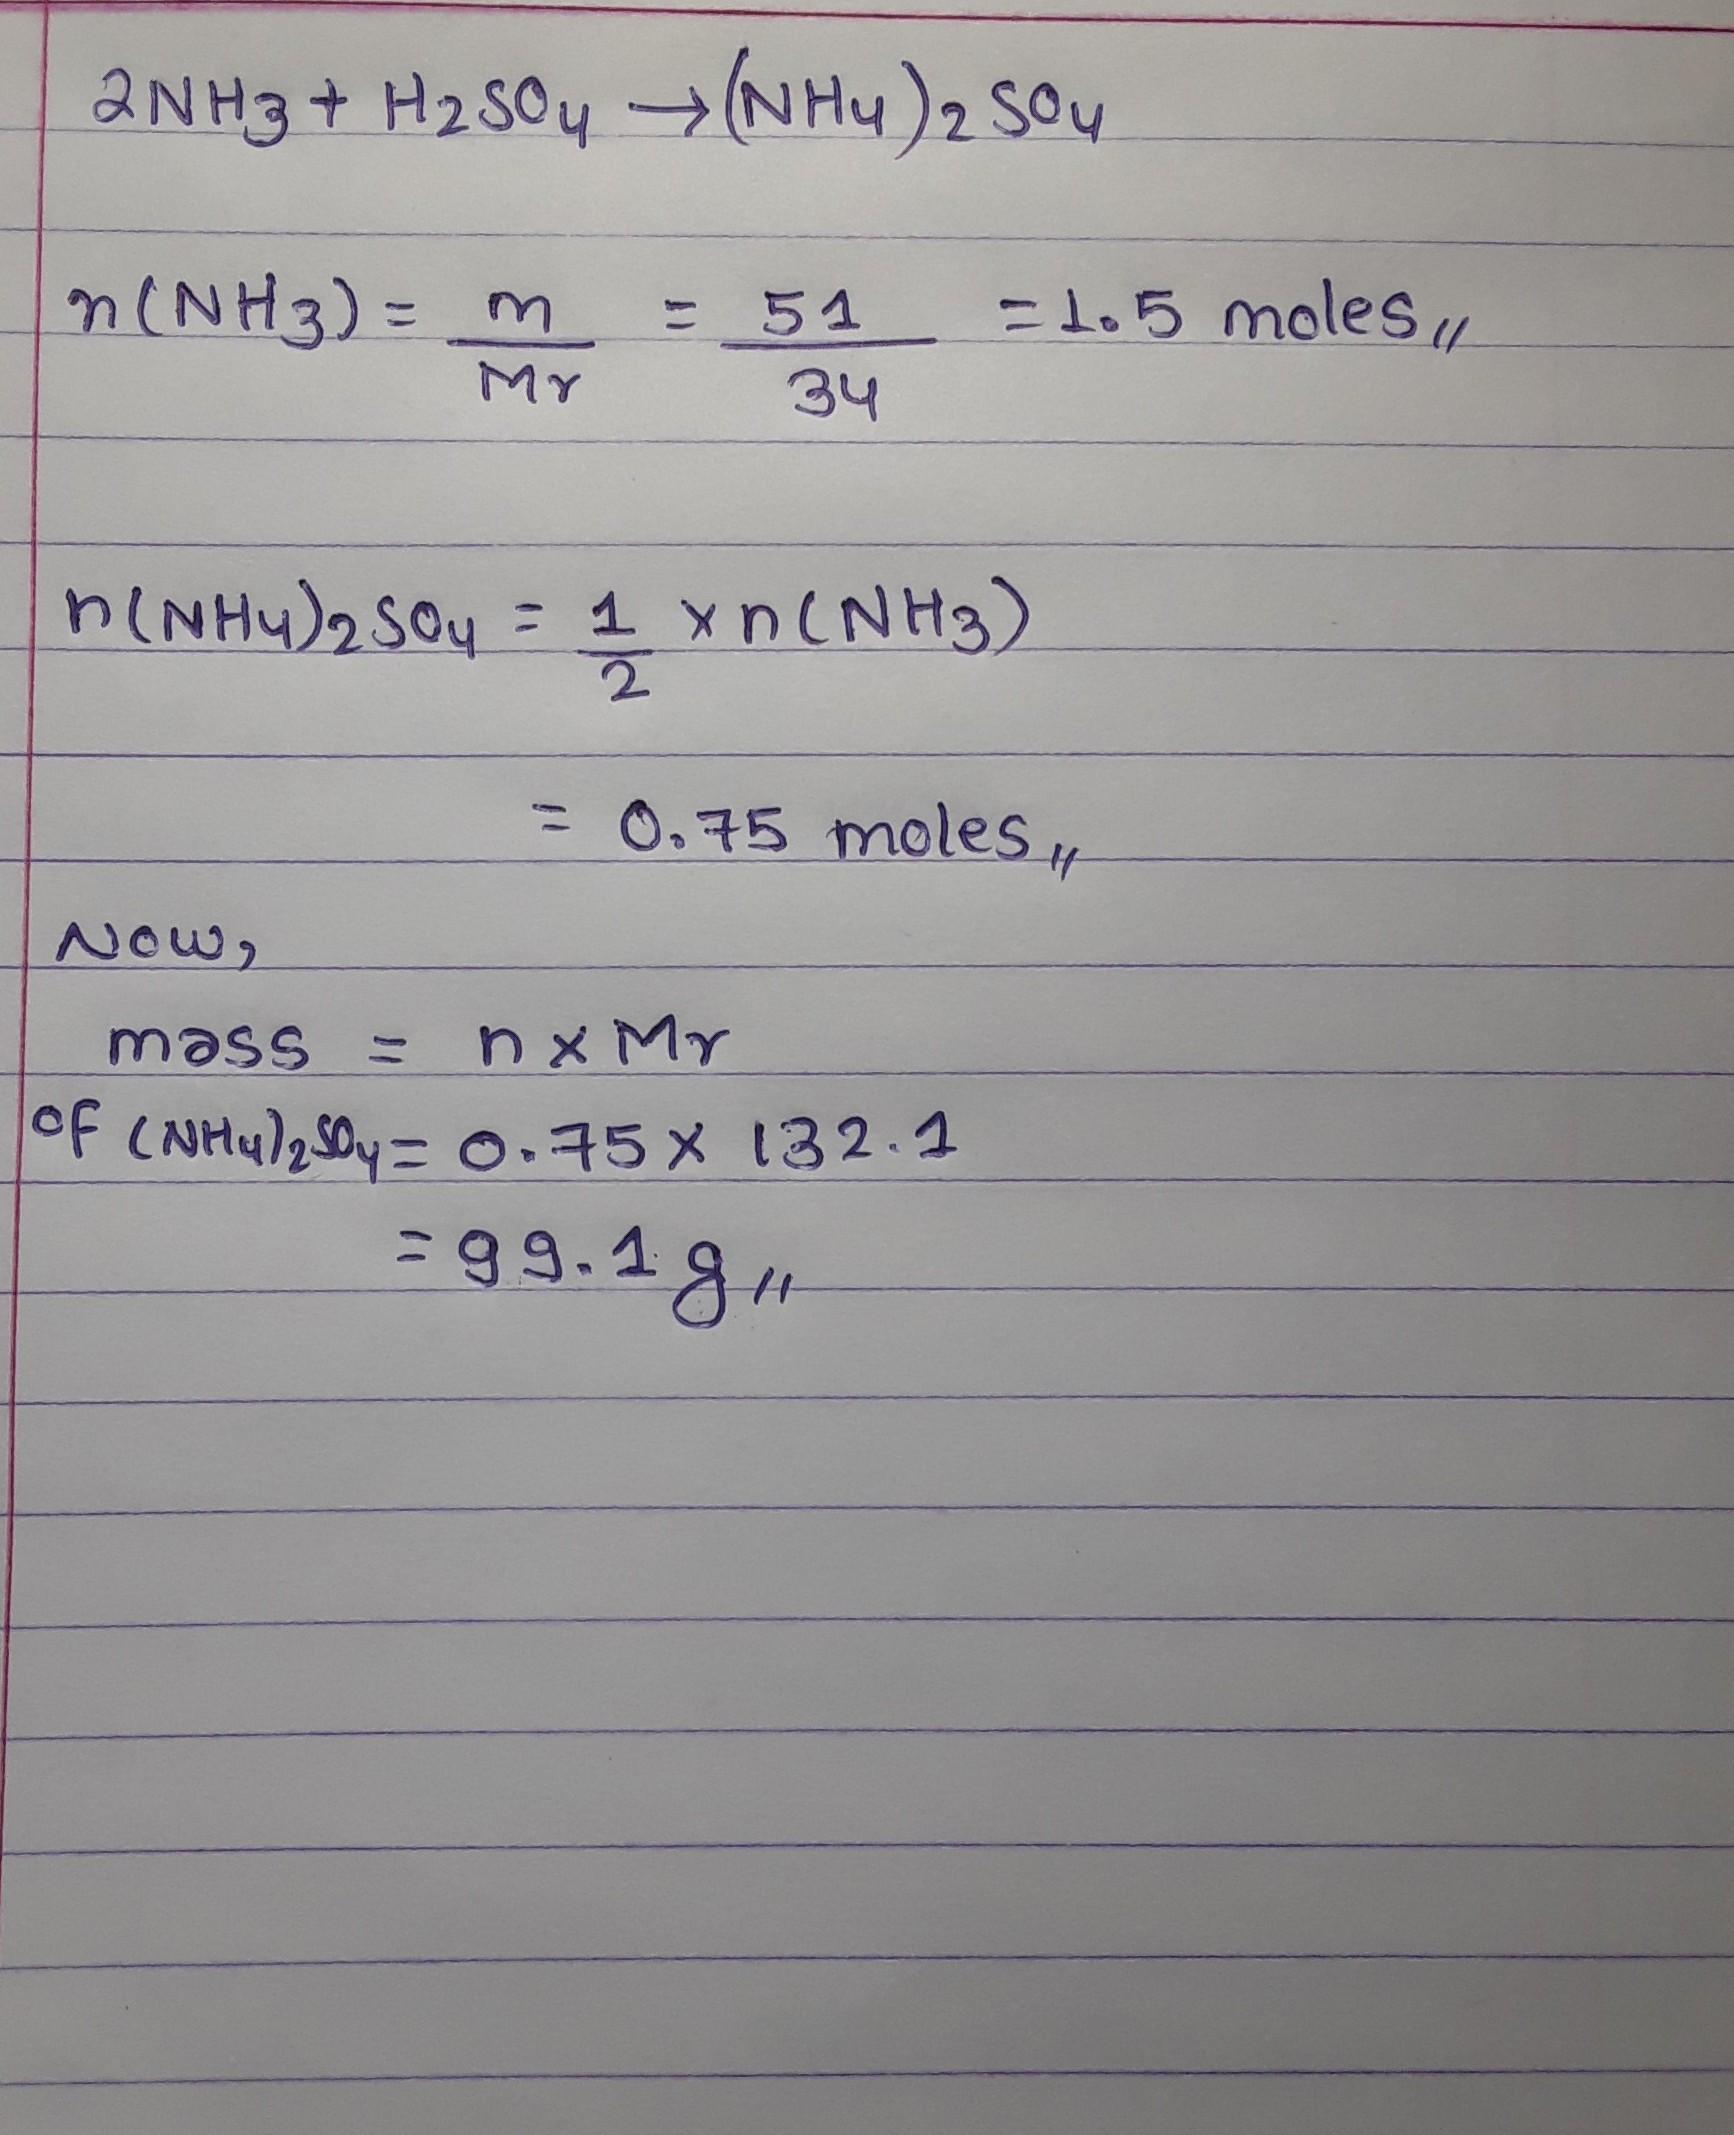 2NH3 + H2SO4 → (NH4)2SO4
n(NH3) = m/Mr = 51/34 = 1.5 moles,,
n(NH4)2SO4 = 1/2 × n(NH3)
= 0.75 moles,,
Now,
mass = n × Mr
of (NH4)2SO4 = 0.75 × 132.1
= 99.1 g,,